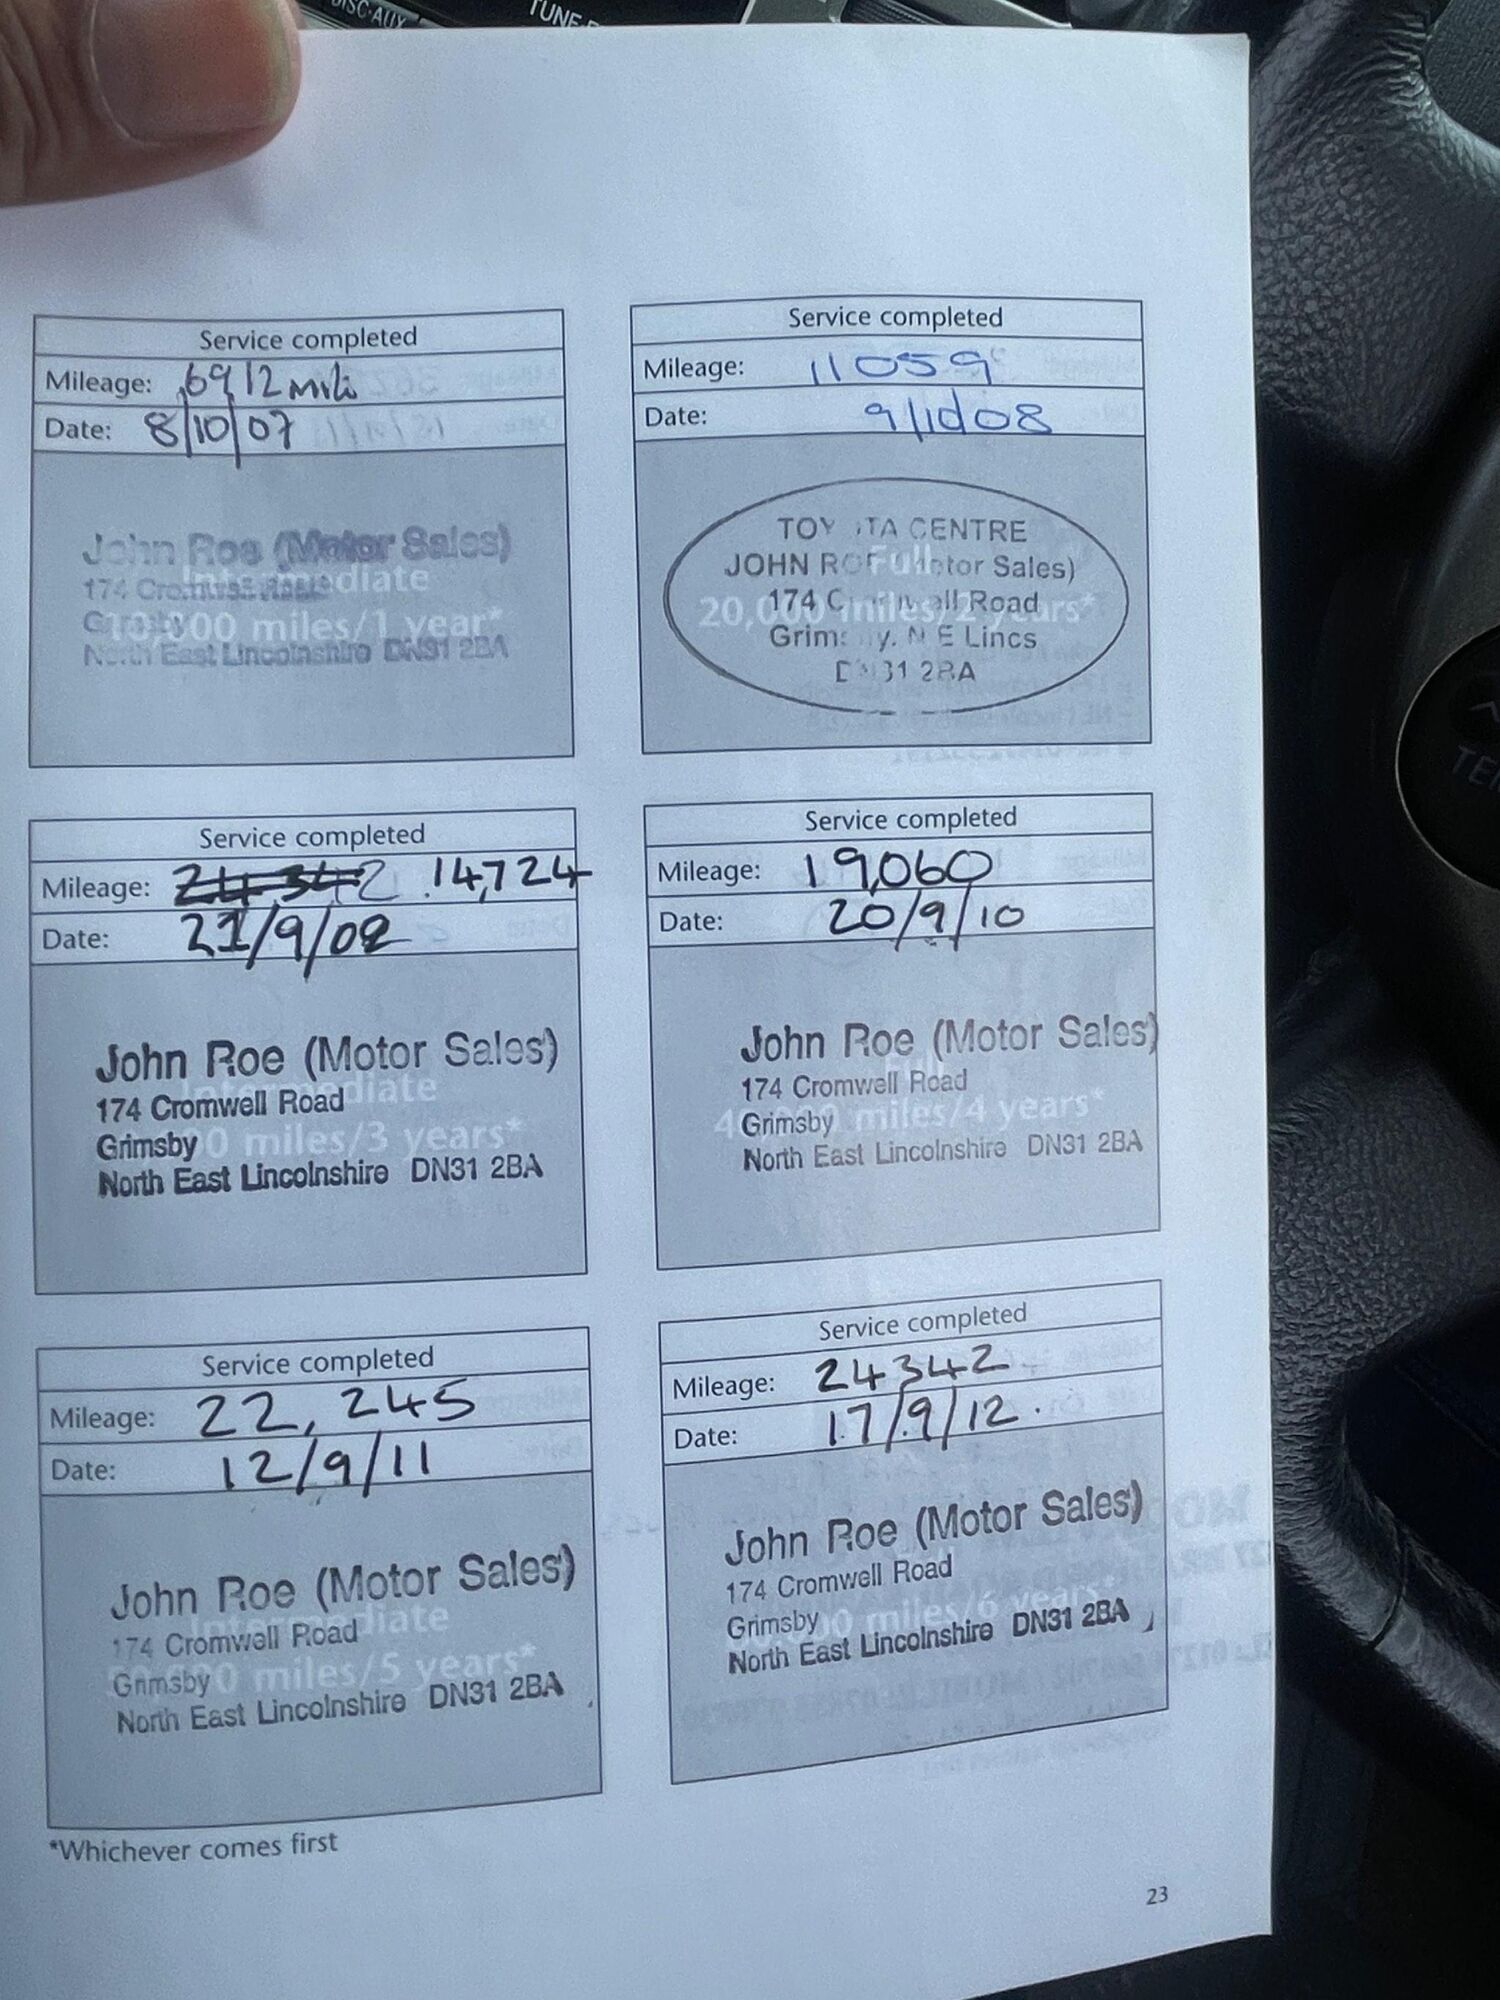 DISC·AUX
TUNE
Service completed
Mileage: 6912 Mili
Date: 8/10/07
John Roe (Motor Sales)
Intermediate
174
10,000 miles/1 year*
North East Lincolnshire DN31 2BA
Service completed
Mileage: 11059
Date: 9/10/08
TOY TA CENTRE
JOHN ROE Motor Sales)
Full
174 C ll Road
20,000 miles/2 years*
Grim y. N E Lincs
DN31 2BA
Service completed
Mileage: 24,342 14,724
Date: 21/9/09
John Roe (Motor Sales)
Intermediate
174 Cromwell Road
Grimsby
miles/3 years*
North East Lincolnshire DN31 2BA
Service completed
Mileage: 19,060
Date: 20/9/10
John Roe (Motor Sales)
Full
174 Cromwell Road
Grimsby
miles/4 years*
North East Lincolnshire DN31 2BA
Service completed
Mileage: 22,245
Date: 12/9/11
John Roe (Motor Sales)
Intermediate
174 Cromwell Road
Grimsby
miles/5 years*
North East Lincolnshire DN31 2BA
Service completed
Mileage: 24342
Date: 17/9/12.
John Roe (Motor Sales)
174 Cromwell Road
Grimsby
miles/6 years*
North East Lincolnshire DN31 2BA
*Whichever comes first
23